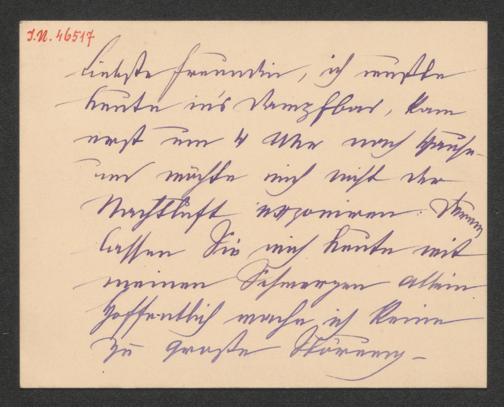 J.N. 46517
Liebste Freundin, ich mußte
heute in's Dampfbad, kam
erst um 4 Uhr nach Hause
und möchte mich nicht der
Nachtluft exponiren. Darum
lassen Sie mich heute mit
meinen Schmerzen allein
Hoffentlich mache ich keine
zu große Störung –